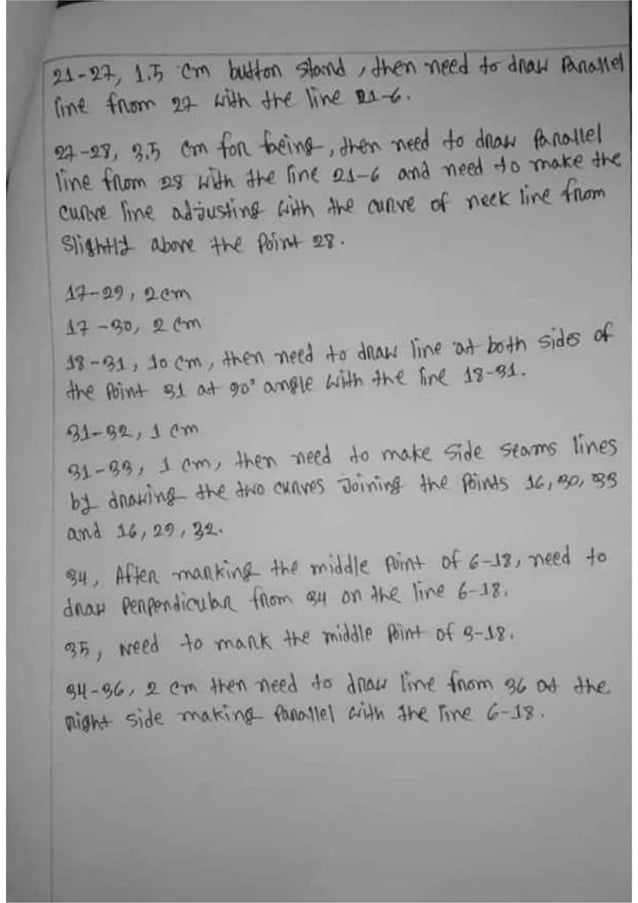 21-27, 1.5 cm button stand, then need to draw Parallel
line from 27 with the line 21-6.
27-28, 3.5 cm for facing, then need to draw Parallel
line from 28 with the line 21-6 and need to make the
curve line adjusting with the curve of neck line from
slightly above the Point 28.
17-29, 2cm
17-30, 2 cm
18-31, 10 cm, then need to draw line at both sides of
the Point 31 at 90° angle with the line 18-31.
31-32, 1 cm
31-33, 1 cm, then need to make side seams lines
by drawing the two curves Joining the Points 16, 30, 33
and 16, 29, 32.
34, After marking the middle Point of 6-18, need to
draw Perpendicular from 34 on the line 6-18.
35, Need to mark the middle Point of 3-18.
34-36, 2 cm then need to draw line from 36 at the
right side making Parallel with the line 6-18.